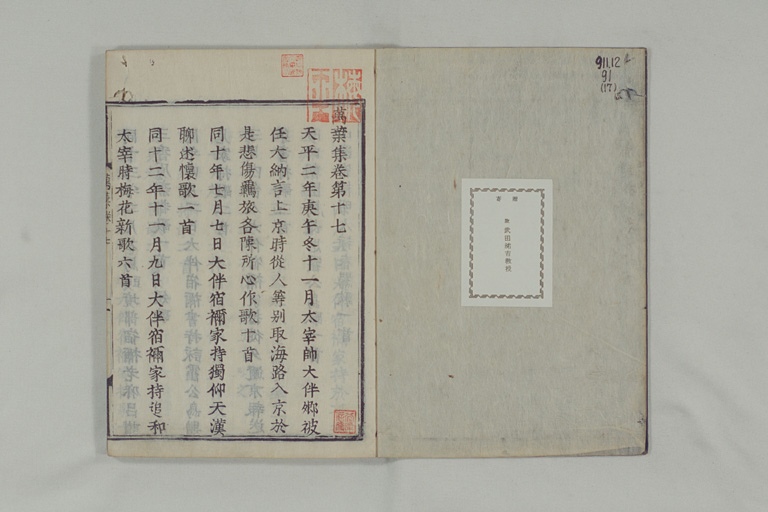 911.12
91
(17)
寄贈
故 武田祐吉教授
萬葉集卷第十七
天平二年庚午冬十一月太宰帥大伴卿被
任大納言上京時從人等別取海路入京於
是悲傷羈旅各陳所心作歌十首
同十年七月七日大伴宿禰家持獨仰天漢
聊述懷歌一首
同十二年十一月九日大伴宿禰家持追和
太宰時梅花新歌六首